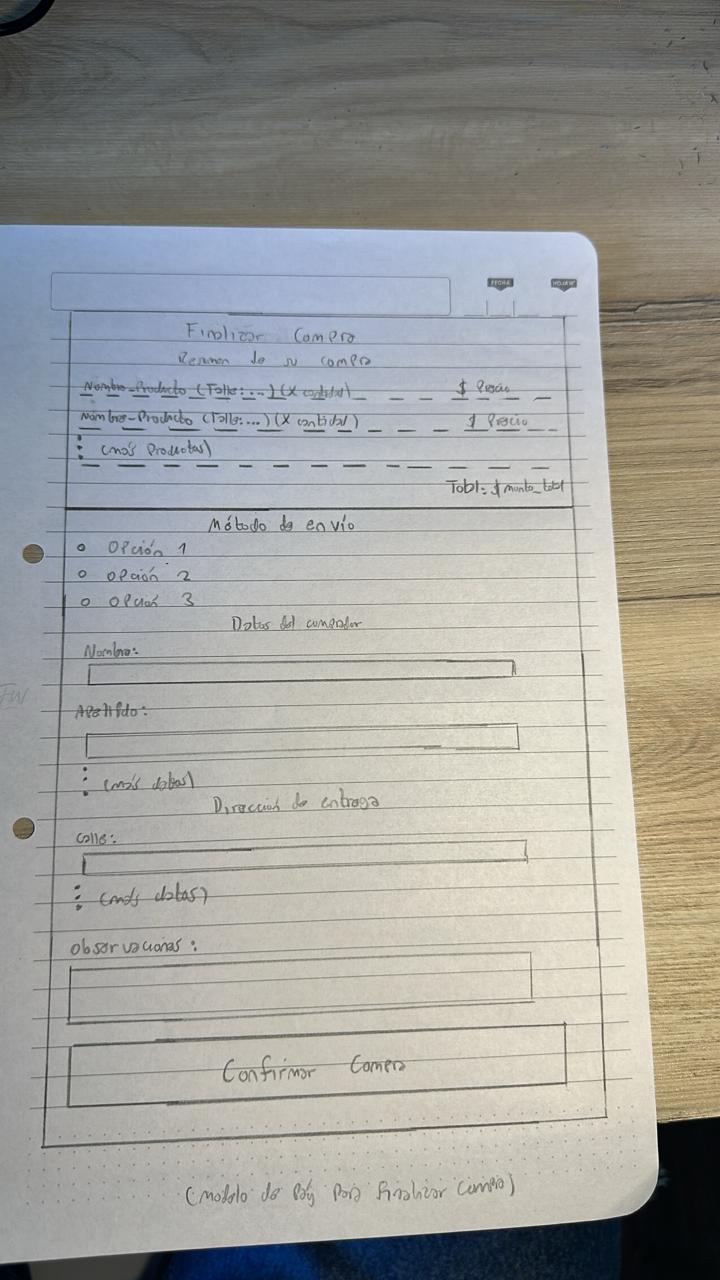 FECHA
HOJA Nº
Finalizar Compra
Resumen de su compra
Nombre-Producto (Talle: ...) (X cantidad) $ Precio
Nombre-Producto (Talle: ...) (X cantidad) $ Precio
(más Productos)
Total: $ monto_total
Método de envío
Opción 1
Opción 2
Opción 3
Datos del comprador
Nombre:
Apellido:
(más datos)
Dirección de entrega
Calle:
(más datos)
Observaciones:
Confirmar Compra
(modelo de Pág para finalizar compra)